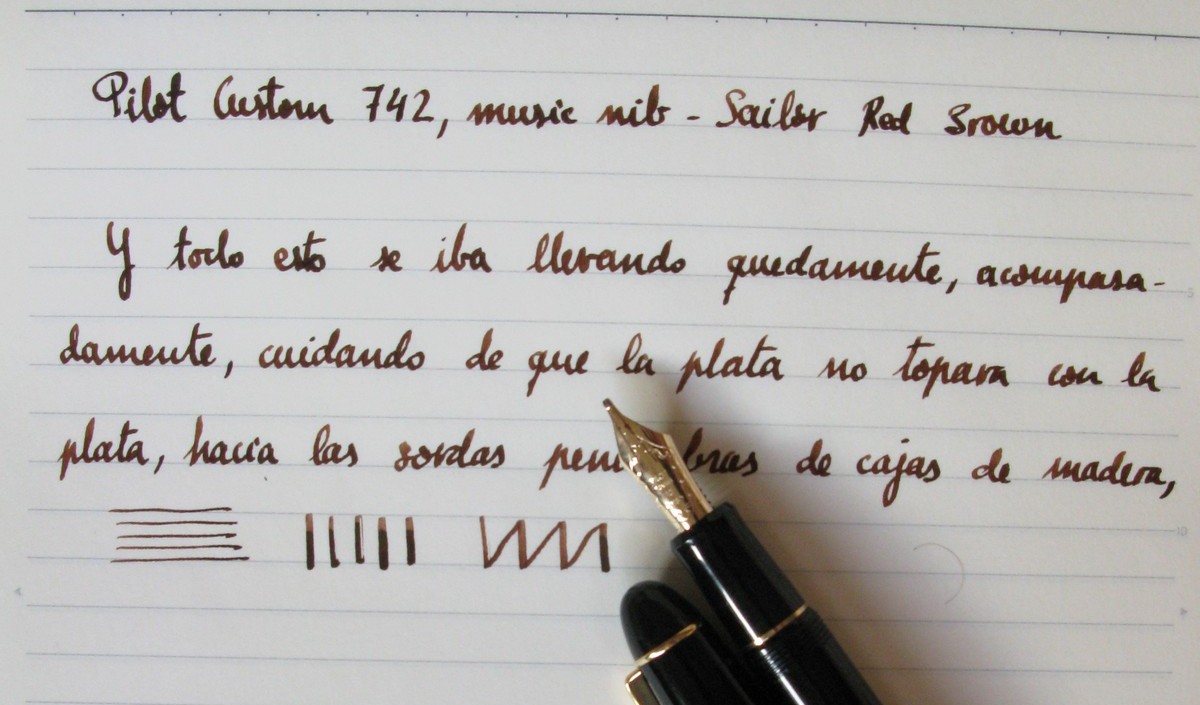 Pilot Custom 742, music nib - Sailor Red Brown
Y todo esto se iba llevando quedamente, acompasa-
damente, cuidando de que la plata no topara con la
plata, hacia las sordas penumbras de cajas de madera,
10